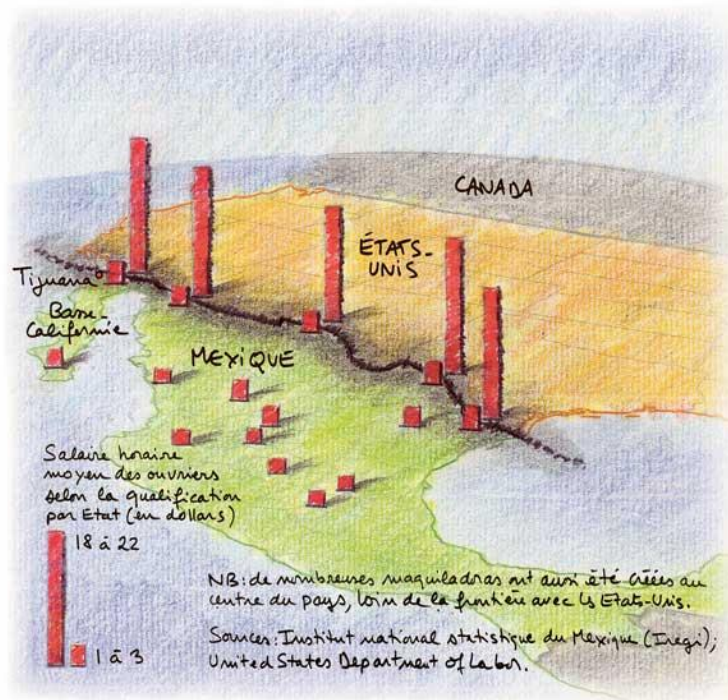 CANADA
ÉTATS-
UNIS
Tijuana
Basse-
Californie
MEXIQUE
Salaire horaire
moyen des ouvriers
selon la qualification
par Etat (en dollars)
18 à 22
1 à 3
NB: de nombreuses maquiladoras ont aussi été créées au
centre du pays, loin de la frontière avec les Etats-Unis.
Sources: Institut national statistique du Mexique (Inegi),
United States Department of Labor.